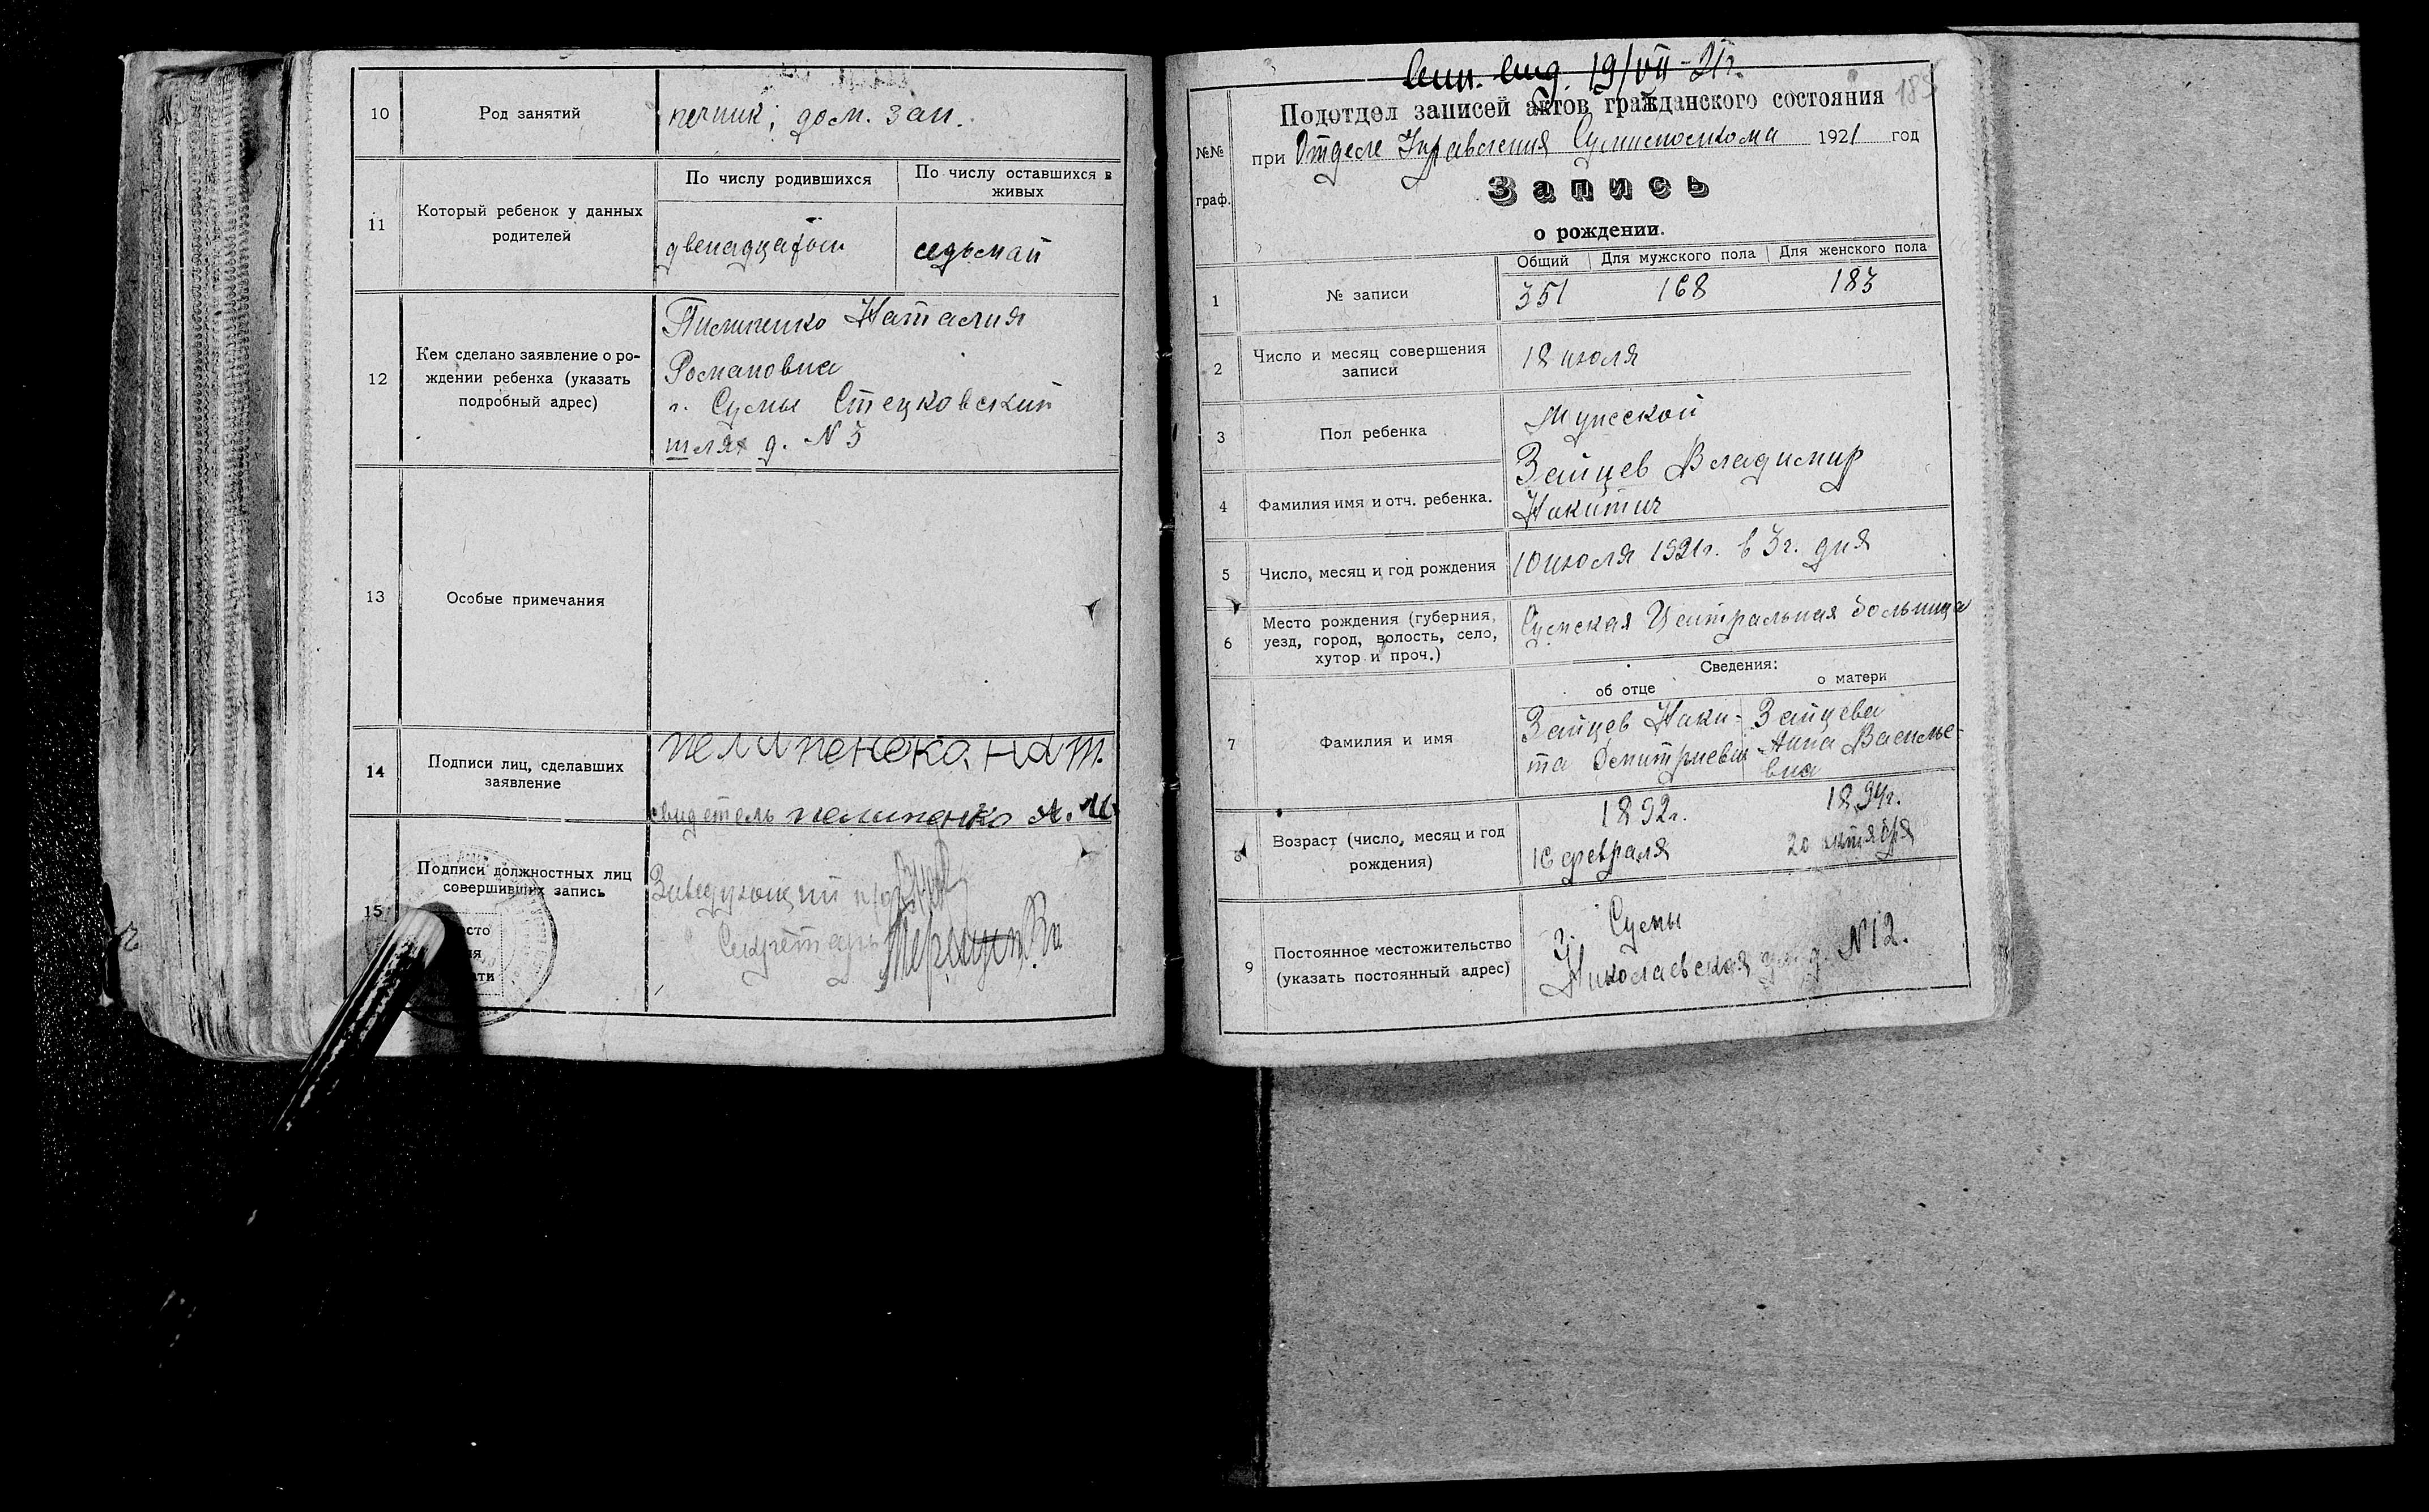 10
Род занятий
печник; дом. зан.
11
Который ребенок у данных
родителей
По числу родившихся
По числу оставшихся в
живых
двенадцатый
седьмай
12
Кем сделано заявление о ро-
ждении ребенка (указать
подробный адрес)
Пилипенко Наталия
Романовна
г. Сумы Стецковский
шлях д. N 3
13
Особые примечания
14
Подписи лиц, сделавших
заявление
пелипенека. нат.
свидетель пелипенко А. М.
15
Подписи должностных лиц
совершивших запись
Заведующий
Секретарь
185
19/VII-21г.
Подотдел записей актов гражданского состояния
при Отделе Управления Сумисполкома 1921 год
№№
граф.
Запись
о рождении.
1
№ записи
Общий
Для мужского пола
Для женского пола
351
168
183
2
Число и месяц совершения
записи
18 июля
3
Пол ребенка
Мужской
4
Фамилия имя и отч. ребенка.
Зайцев Владимир
Никитич
5
Число, месяц и год рождения
10 июля 1921г. в 3 г. дня
6
Место рождения (губерния,
уезд, город, волость, село,
хутор и проч.)
Сумская Центральная больница
Сведения:
об отце
о матери
7
Фамилия и имя
Зайцев Ники-
та Дмитриевич
Зайцева
Анна Василье-
вна
8
Возраст (число, месяц и год
рождения)
1892г.
16 февраля
1894г.
20 октября
9
Постоянное местожительство
(указать постоянный адрес)
г. Сумы
Николаевская ул. д. N 12.